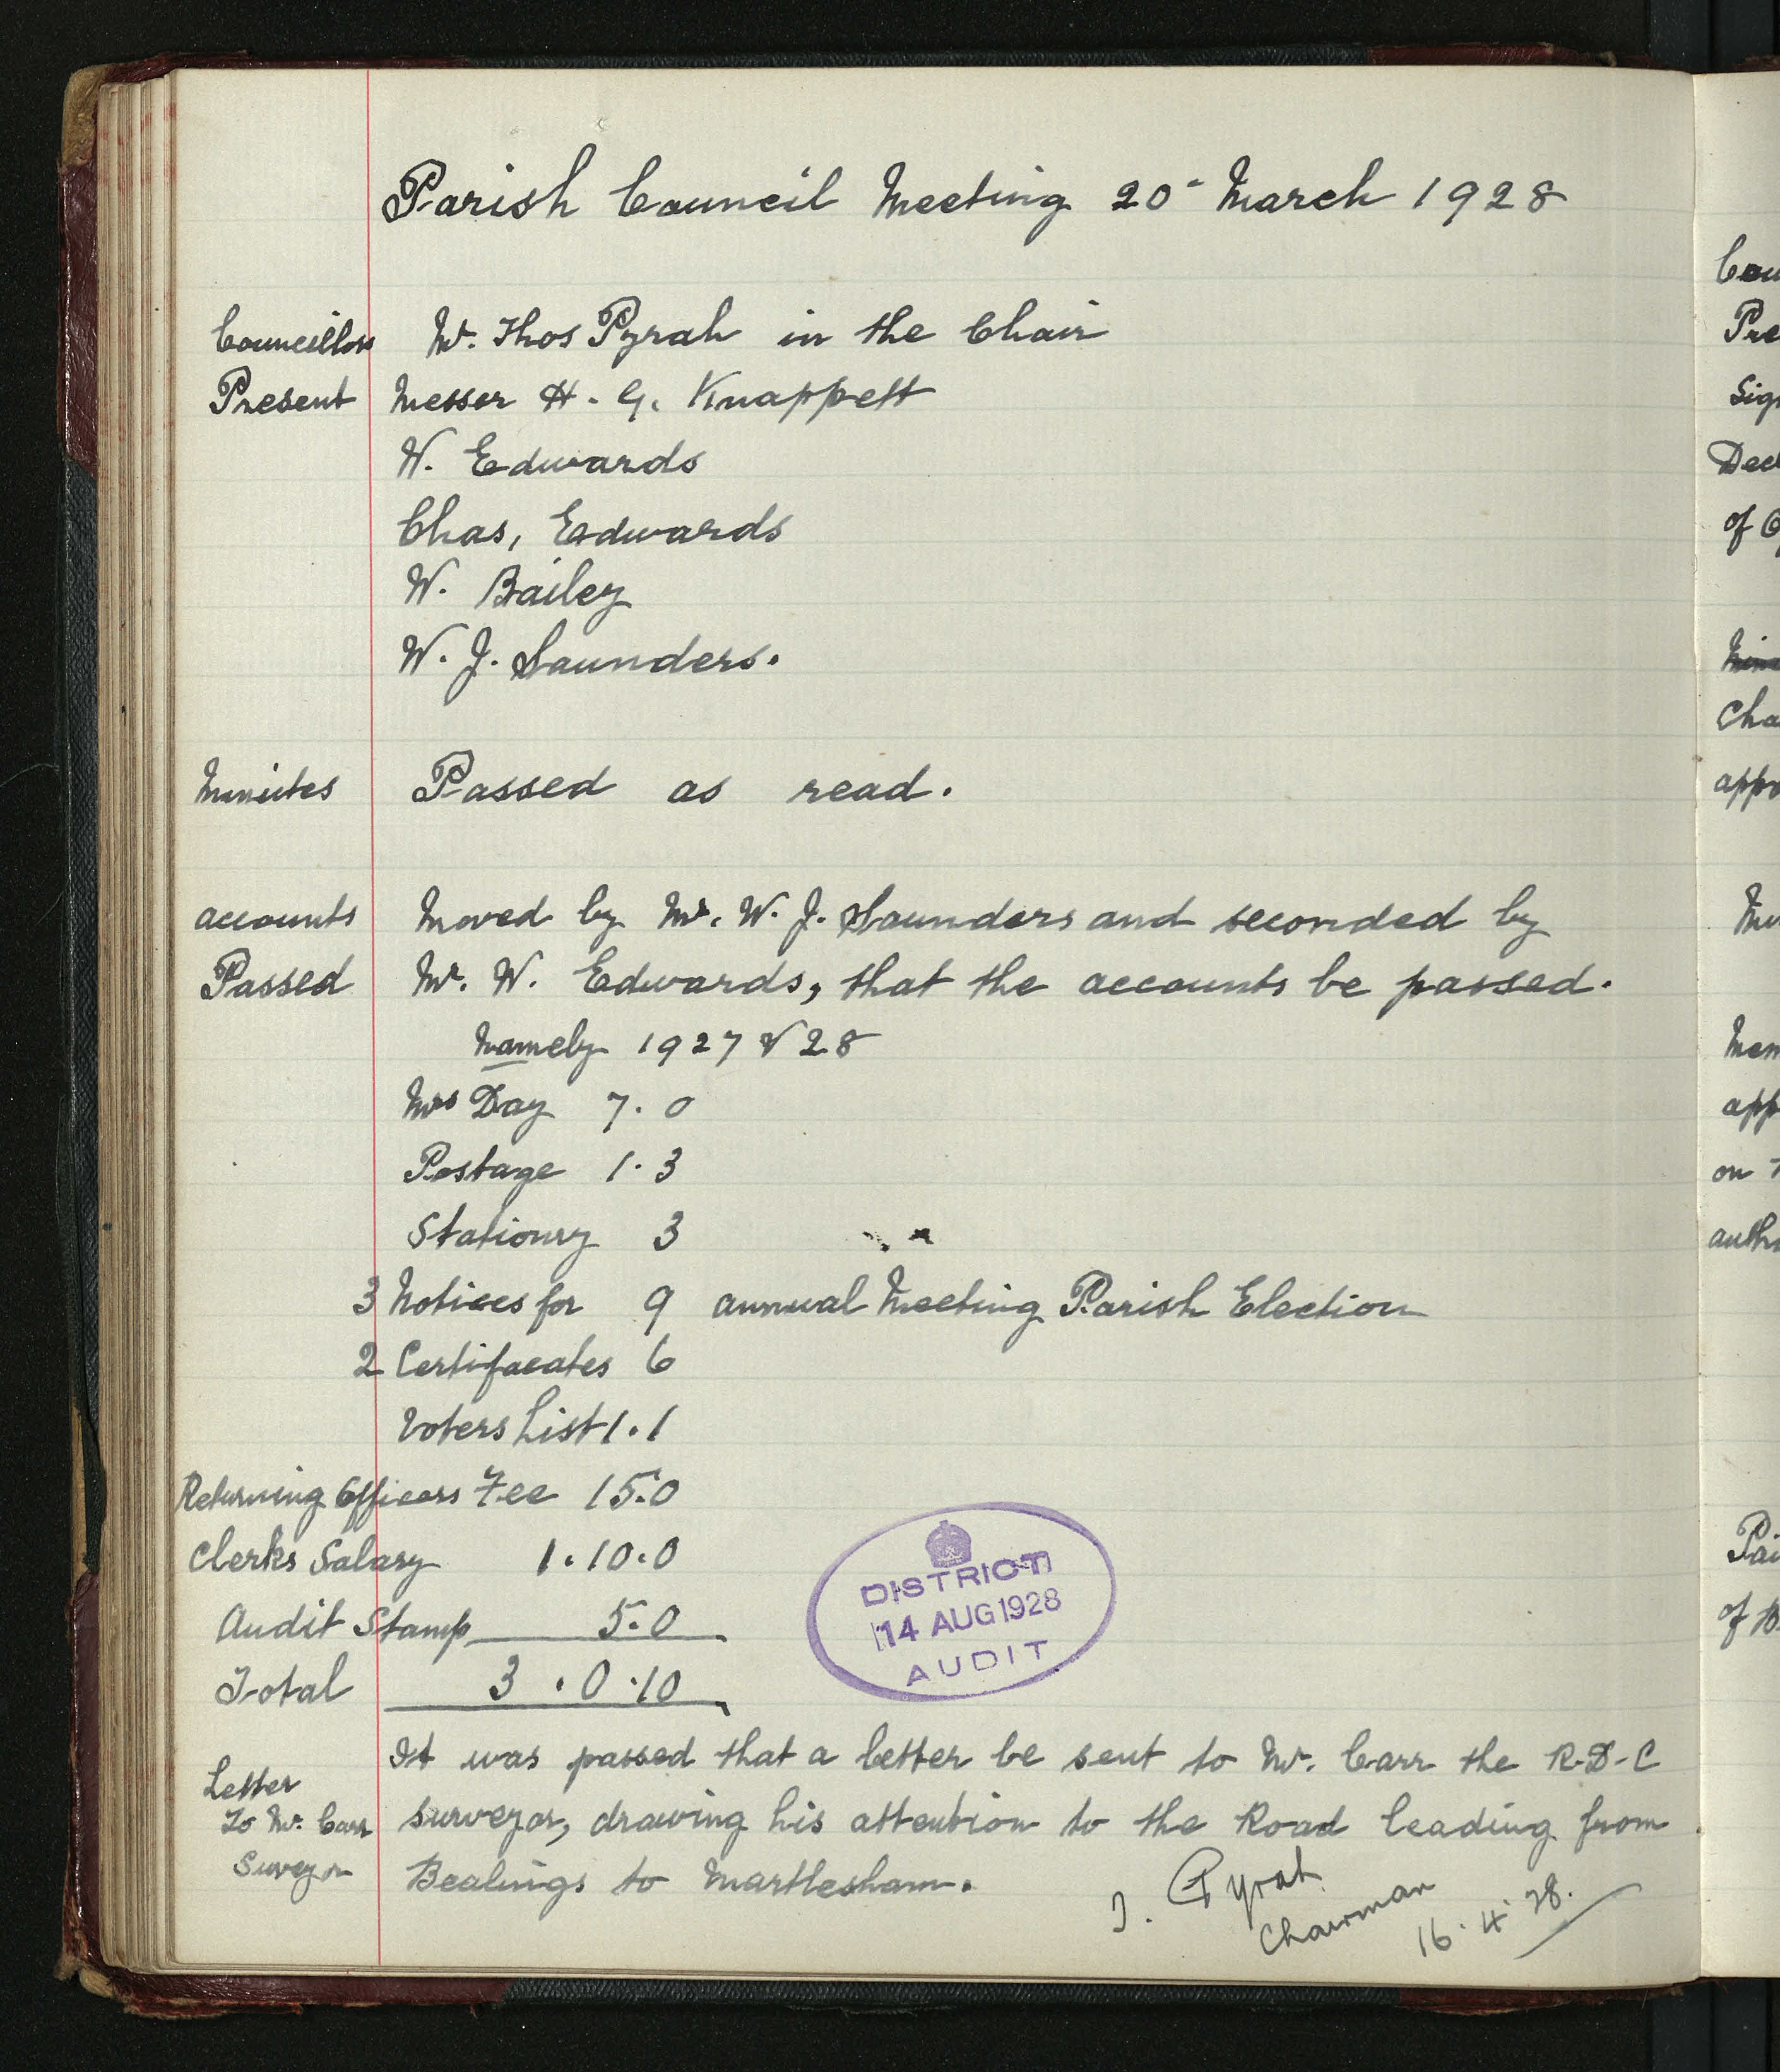 Parish Council Meeting 20- March 1928
Councillors Mr. Thos Pyrah in the Chair
Present Messer H. G. Knappett
W. Edwards
Chas, Edwards
W. Bailey
W. J. Saunders.
Minutes Passed as read.
accounts Moved by Mr. W. J. Saunders and seconded by
Passed Mr. W. Edwards, that the accounts be passed.
Namely 1927 & 28
Mrs Day 7. 0
Postage 1. 3
Stationry 3
3 Notices for 9 annual Meeting Parish Election
2 Certifacates 6
Voters List 1. 1
Returning Officers Fee 15.0
Clerks Salary 1. 10. 0
Audit Stamp 5. 0
Total 3 . 0 . 10
DISTRICT
14 AUG 1928
AUDIT
It was passed that a letter be sent to Mr. Carr the R-D-C
Letter
To Mr. Carr surveyor, drawing his attention to the Road leading from
Surveyor Bealings to Martlesham.
T. Pyrah
Chairman
16. 4. 28.
Cou
Pre
Sig
Dec
of
Cha
appo
Mem
app
on
autho
Pai
of